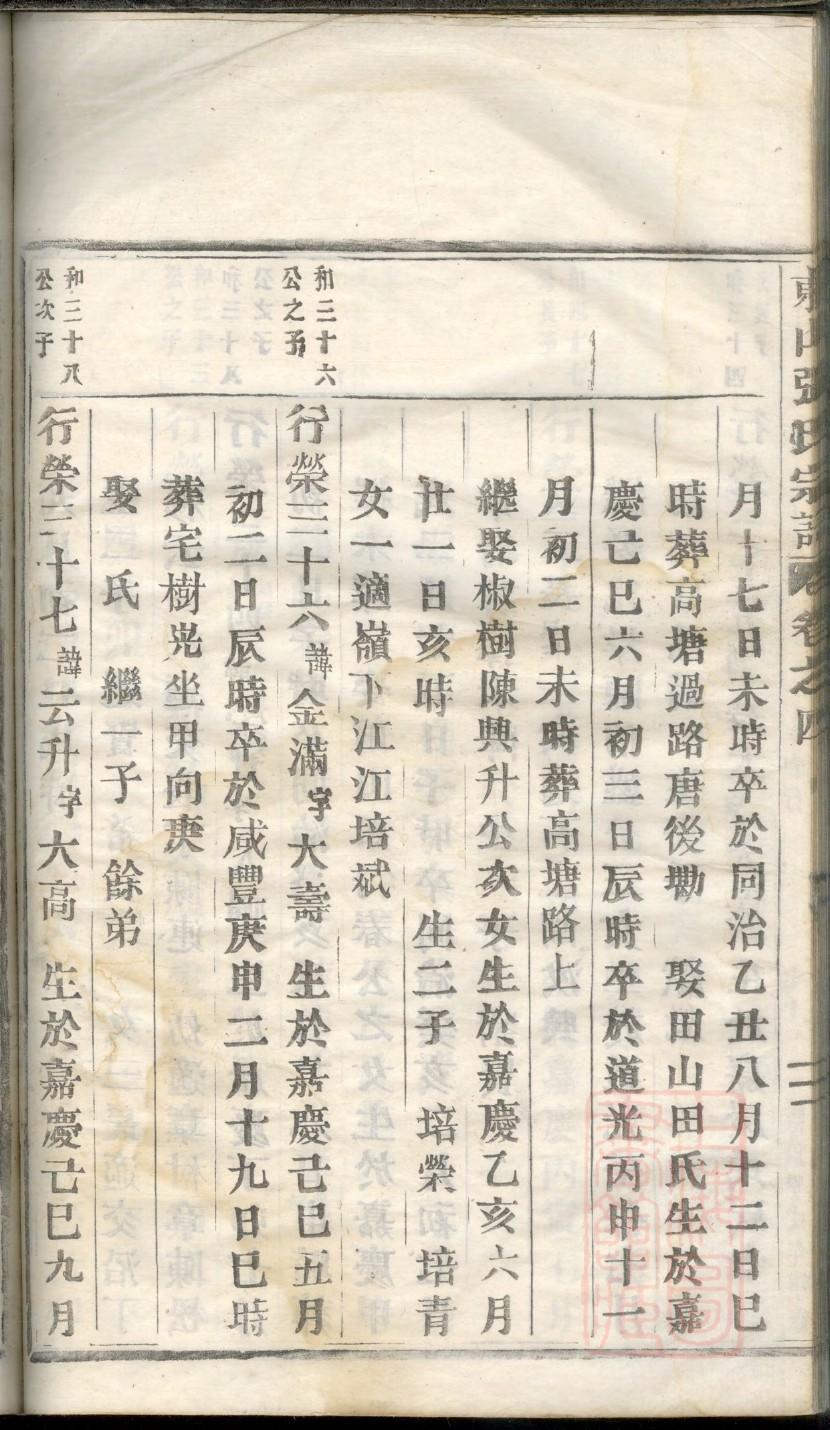 東山張氏宗譜卷之四
月十七日未時卒於同治乙丑八月十二日巳
時葬高塘過路唐後墈 娶田山田氏生於嘉
慶己巳六月初三日辰時卒於道光丙申十一
月初二日未時葬高塘路上
繼娶椒樹陳興升公次女生於嘉慶乙亥六月
廿一日亥時 生二子 培榮 培青
女一適嶺下江江培斌
和三十六
公之子
行榮三十六諱金滿字大壽 生於嘉慶己巳五月
初二日辰時卒於咸豐庚申二月十九日巳時
葬宅樹光坐甲向庚
娶 氏 繼一子 餘弟
和三十八
公次子
行榮三十七諱云升字大高 生於嘉慶己巳九月